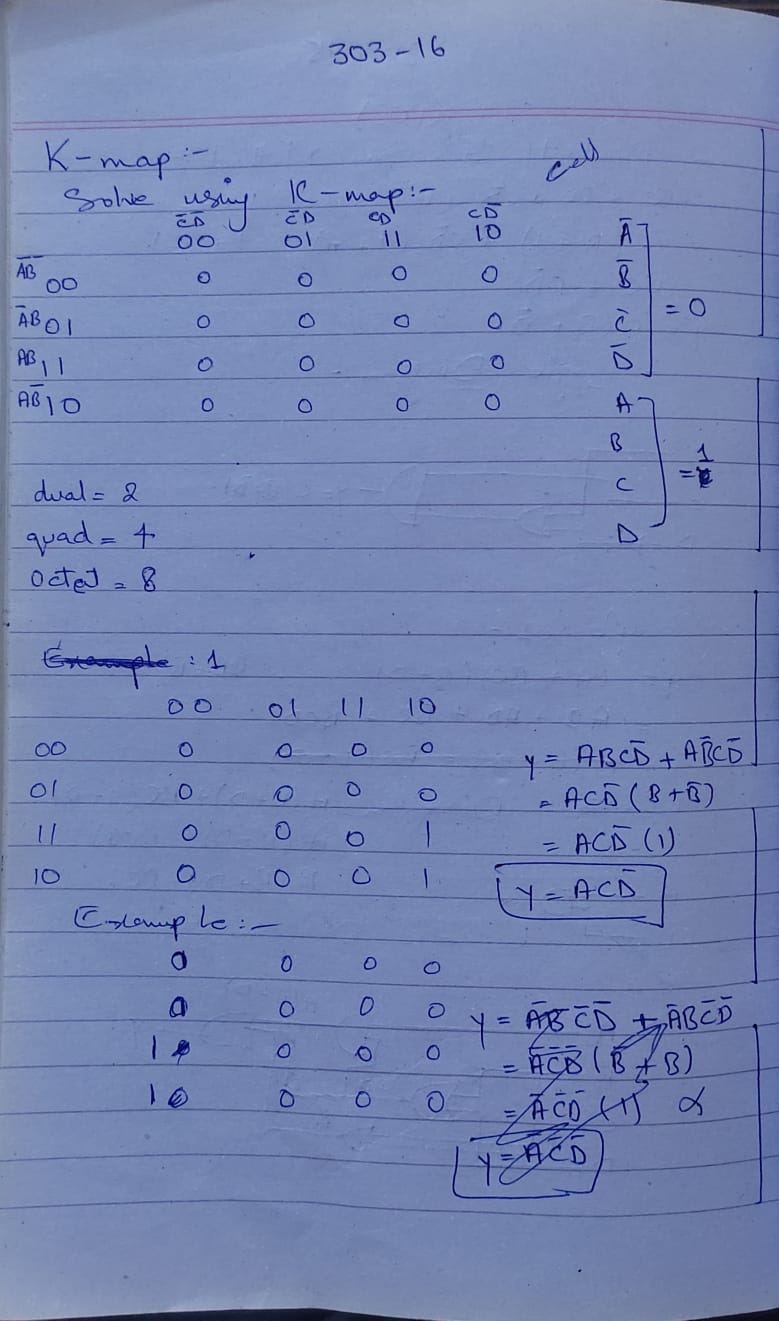 303-16
K-map :-
cell
Solve using K-map:-
C̅D̅ C̅D CD CD̅
00 01 11 10
A̅B̅ 00 0 0 0 0
A̅B 01 0 0 0 0
AB 11 0 0 0 0
AB̅ 10 0 0 0 0
A̅
B̅
C̅
D̅
= 0
A
B
C
D
= 1
dual = 2
quad = 4
Octet = 8
Example : 1
00 01 11 10
00 0 0 0 0
01 0 0 0 0
11 0 0 0 1
10 0 0 0 1
y = ABCD̅ + AB̅CD̅
= ACD̅ (B+B̅)
= ACD̅ (1)
y = ACD̅
Example :-
0 0 0 0
0 0 0 0
1 0 0 0
1 0 0 0
y = A̅B̅ C̅D̅ + A̅BC̅D̅
= A̅C̅D̅ (B̅ + B)
= A̅C̅D̅ (1)
y = A̅C̅D̅